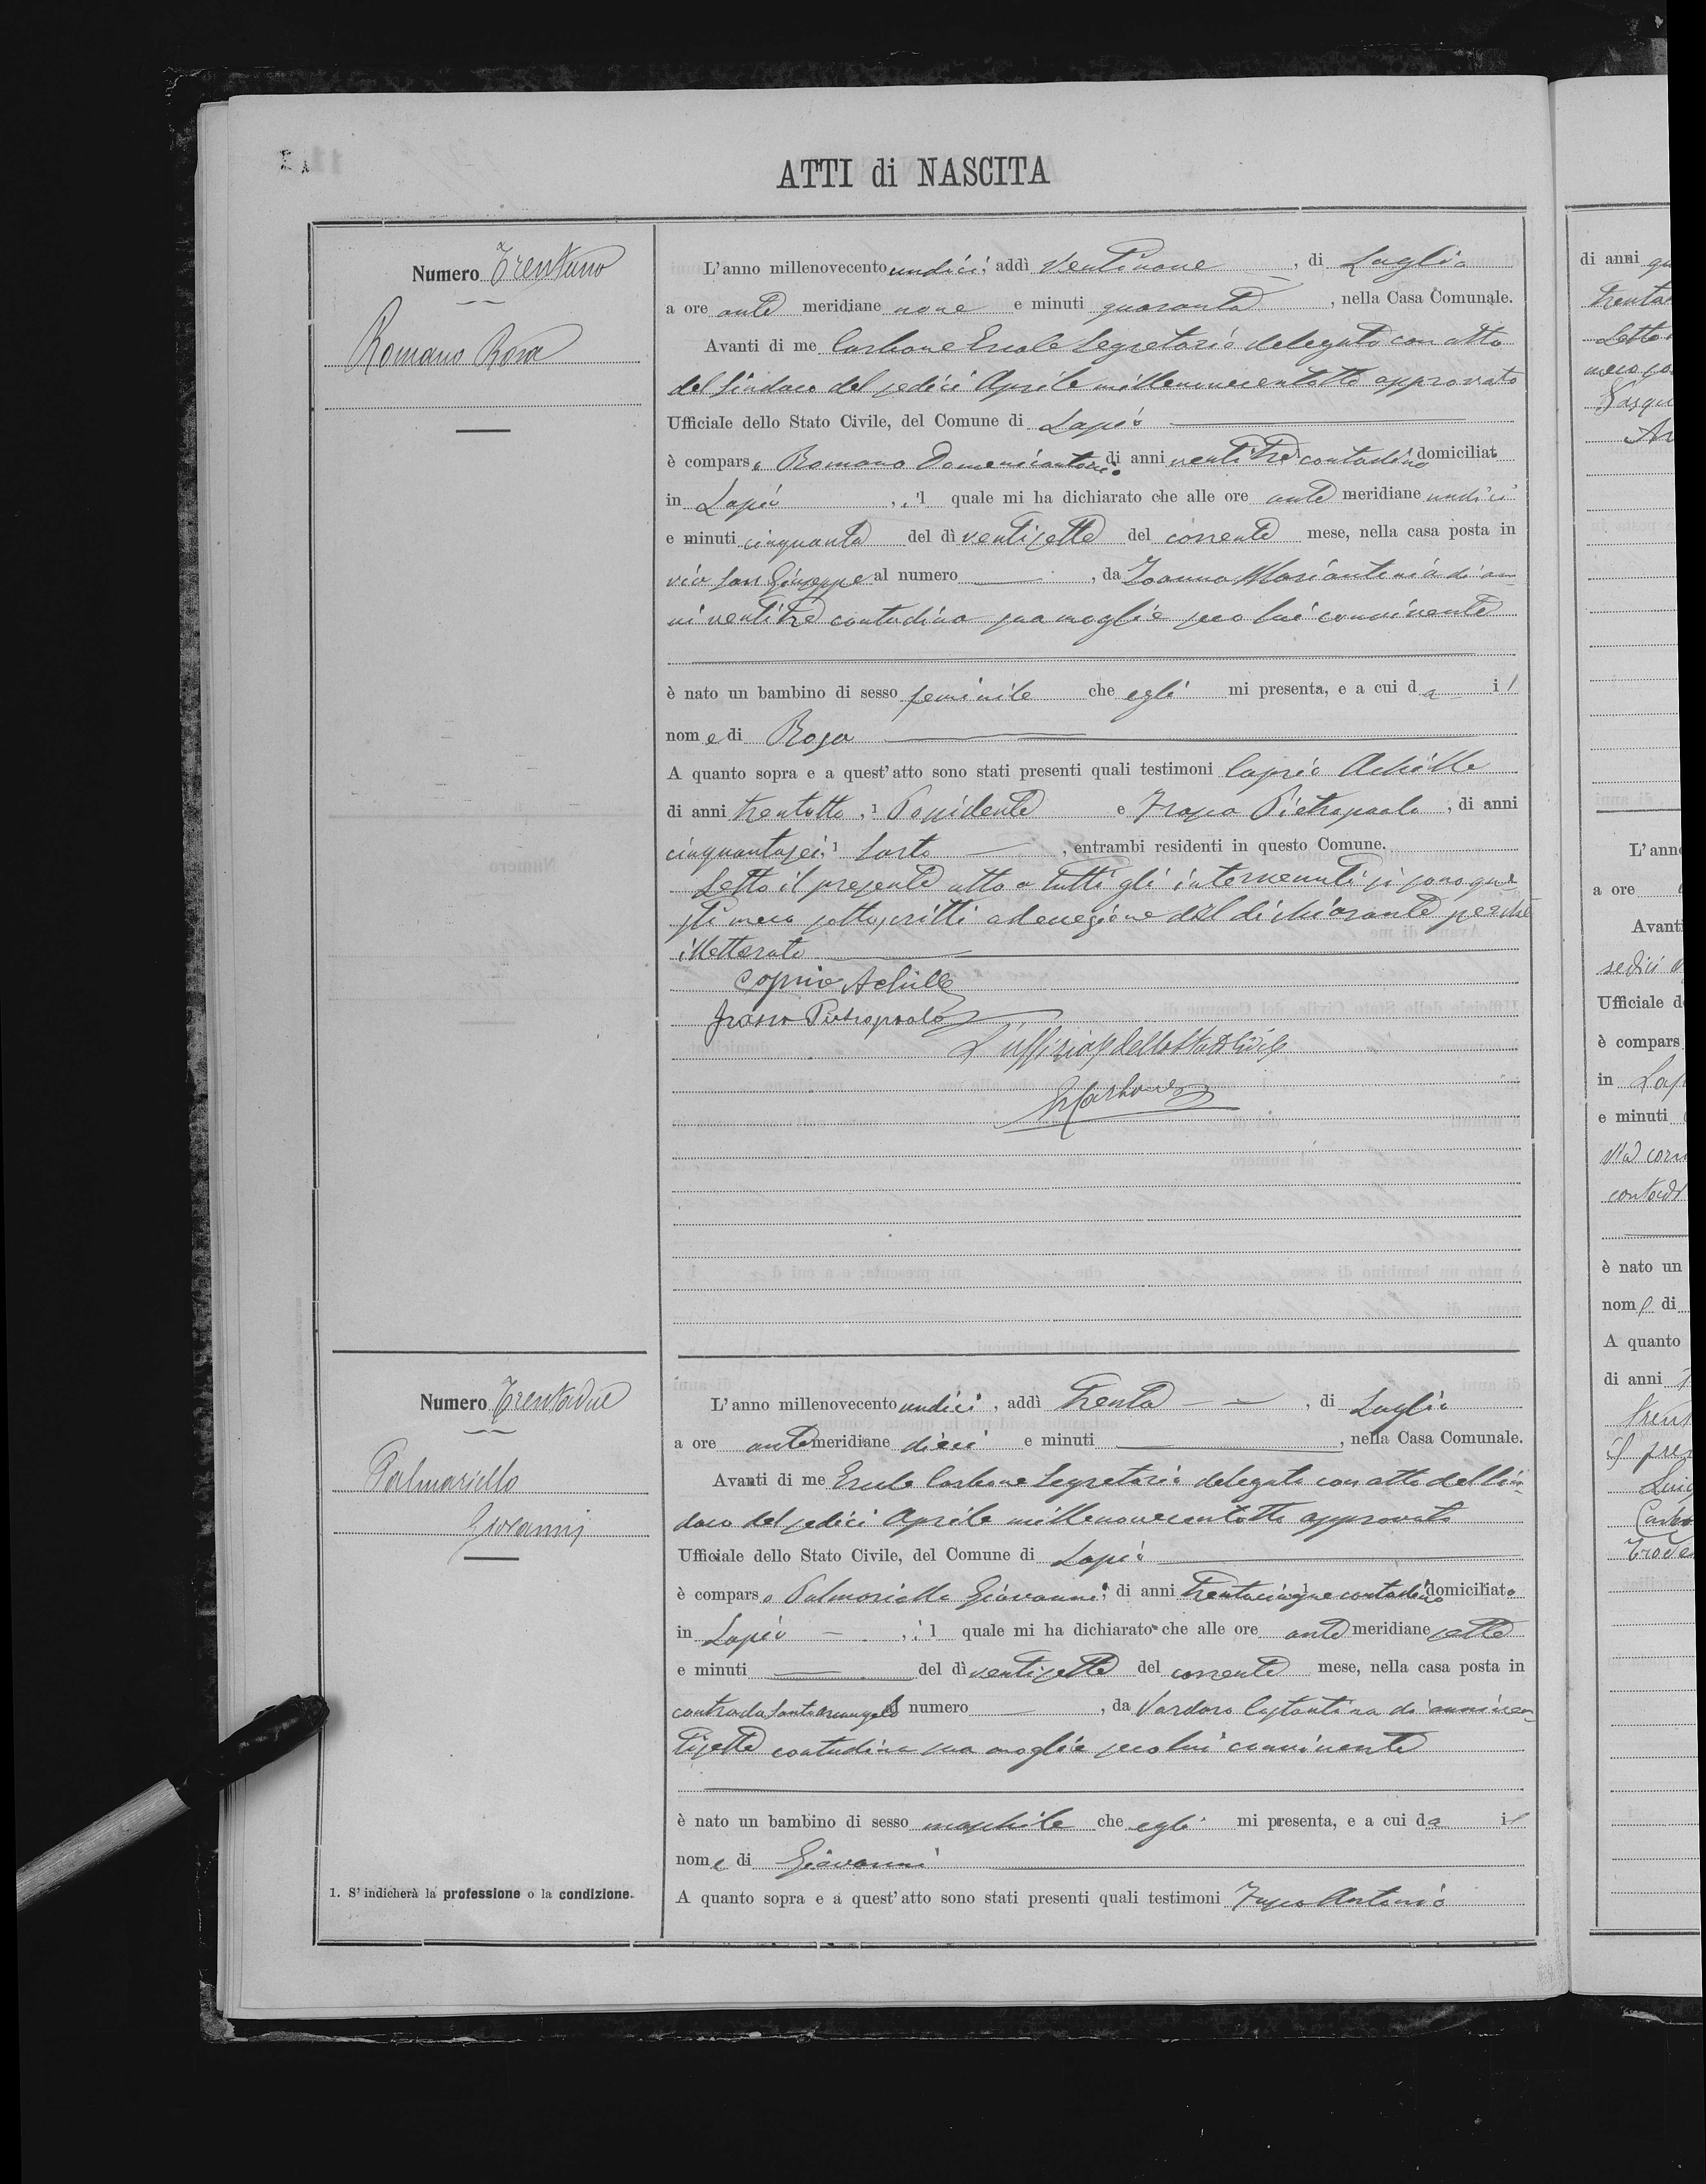 ATTI di NASCITA
Numero Trentuno
Romano Rosa
L'anno millenovecento undici, addì ventinove, di Luglio
a ore ante meridiane nove e minuti quaranta, nella Casa Comunale.
Avanti di me Carbone Ercole Segretario delegato con atto
del Sindaco del sedici Aprile millenovecentotto approvato
Ufficiale dello Stato Civile, del Comune di Lapio
è comparso Romano Domenicantonio, di anni ventitre contadino domiciliat
in Lapio, il quale mi ha dichiarato che alle ore ante meridiane undici
e minuti cinquanta del dì ventisette del corrente mese, nella casa posta in
via San Giuseppe al numero, da Ioanna Mariantonia di an-
ni ventitre contadina sua moglie seco lui convivente
è nato un bambino di sesso feminile che egli mi presenta, e a cui da il
nome di Rosa
A quanto sopra e a quest'atto sono stati presenti quali testimoni Caprio Achille
di anni trentotto, 1 Possidente e Frasca Pietropaolo, di anni
cinquantasei, 1 Sarto, entrambi residenti in questo Comune.
Letto il presente atto a tutti gli intervenuti si sono que-
sti meco sottoscritti ad eccezione del dichiarante perché
illetterato
Caprio Achille
Pietropaolo
L'uffiziale dello Stato Civile
E Carbone
Numero Trentadue
Palmariello
Giovanni
L'anno millenovecento undici, addì trenta, di Luglio
a ore antemeridiane dieci e minuti, nella Casa Comunale.
Avanti di me Ercole Carbone Segretario delegato con atto del Sin-
daco del sedici Aprile millenovecentotto approvato
Ufficiale dello Stato Civile, del Comune di Lapio
è comparso Palmariello Giovanni, di anni trentacinque contadino domiciliato
in Lapio, il quale mi ha dichiarato che alle ore ante meridiane sette
e minuti del dì ventisette del corrente mese, nella casa posta in
contrada Santarcangelo al numero, da Vardaro Costantina di anni ven-
tisette contadina sua moglie seco lui convivente
è nato un bambino di sesso maschile che egli mi presenta, e a cui da il
nome di Giovanni
A quanto sopra e a quest'atto sono stati presenti quali testimoni Antonio
1. S'indicherà la professione o la condizione.
di anni
L'ann
a ore
Avanti
sedici
Ufficiale d
è compars
in Lap
e minuti
è nato un
nome di
A quanto
di anni